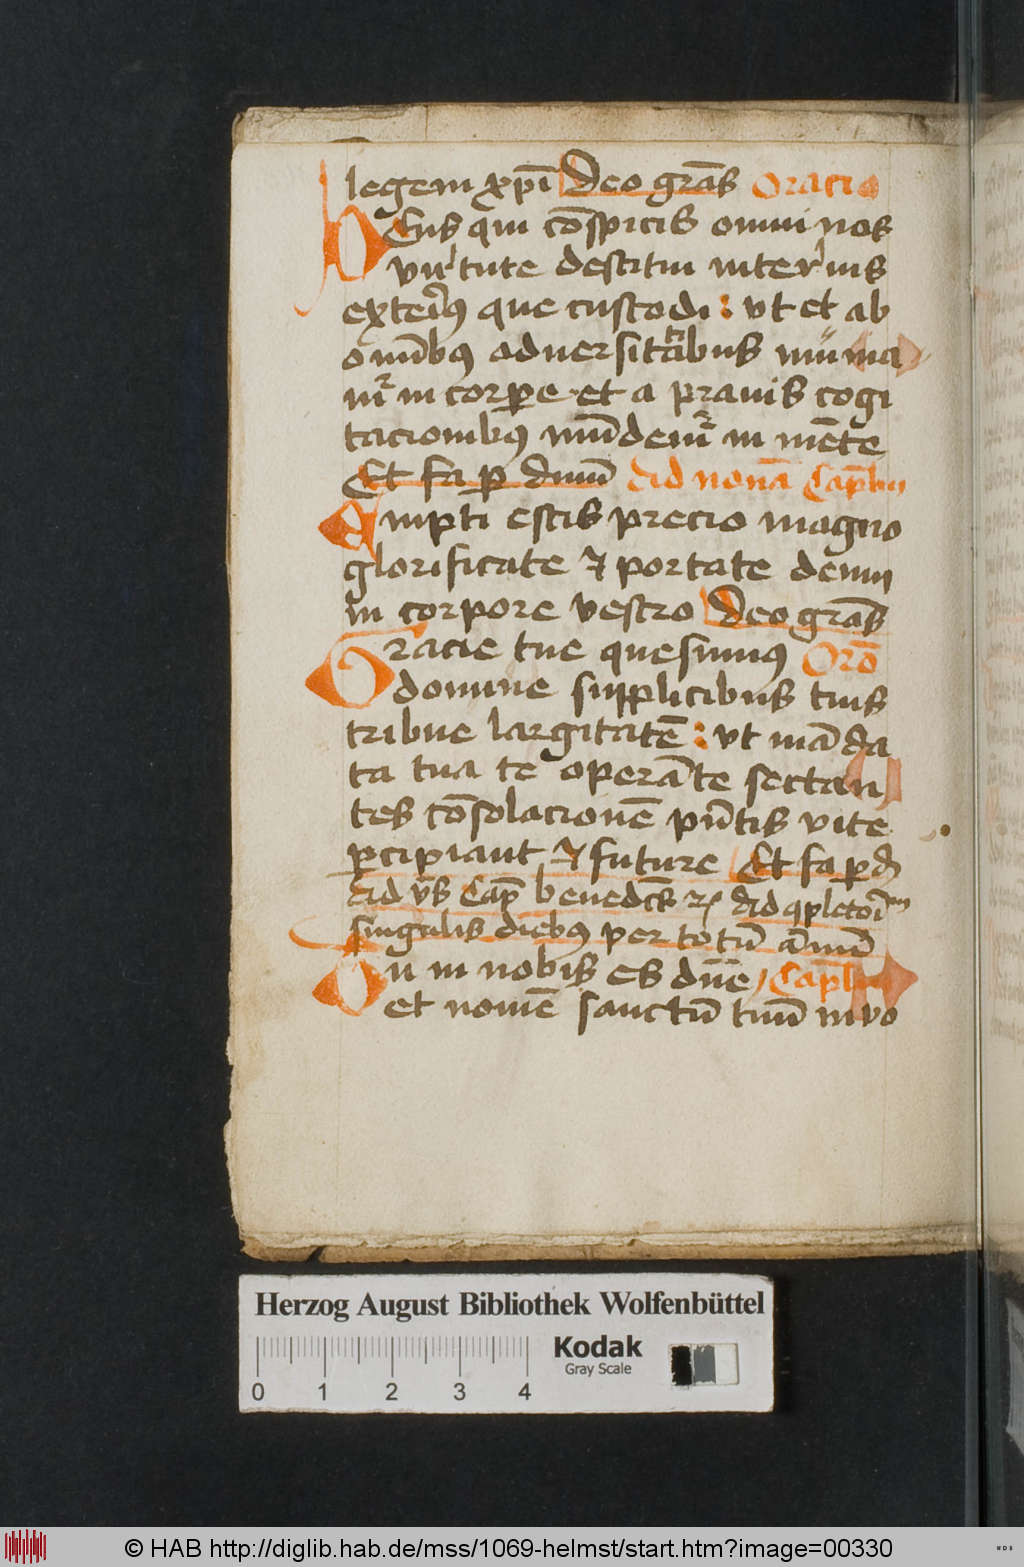 legem xp̄i Deo grās Oracio
Deus qui cōspicis omni nos
virtute destitui interius
exterius que custodi : vt et ab
omībus aduersitatibus mūia
mur in corpore et a prauis cogi
tacionibus mūdemur in mēte
Et fa p dnm̄ Ad nonā Cap̄lm
Empti estis precio magno
glorificate ⁊ portate deum
in corpore vestro Deo grās
Gracie tue quesumus Orō
domine supplicibus tuis
tribue largitatē : vt māda
ta tua te operāte sectan
tes cōsolacionē pn̄tis vite
percipiant ⁊ future Et fa p d
Ad vs̄ Cap̄ benedcs̄ Ad cpletoriū
singulis diebus per totū ānū
Tu in nobis es dn̄e Cap̄lm
et nomē sanctū tuū inuo
Herzog August Bibliothek Wolfenbüttel
Kodak
Gray Scale
0 1 2 3 4
© HAB http://diglib.hab.de/mss/1069-helmst/start.htm?image=00330